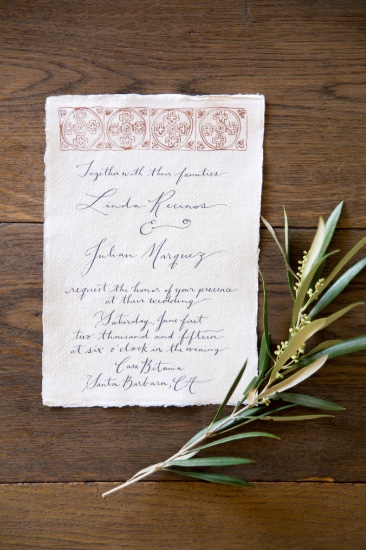 Together with their families
Linda Recinos
&
Julian Marquez
request the honor of your presence
at their wedding
Saturday, June first
two thousand and fifteen
at six o'clock in the evening
Casa Bitama
Santa Barbara, CA